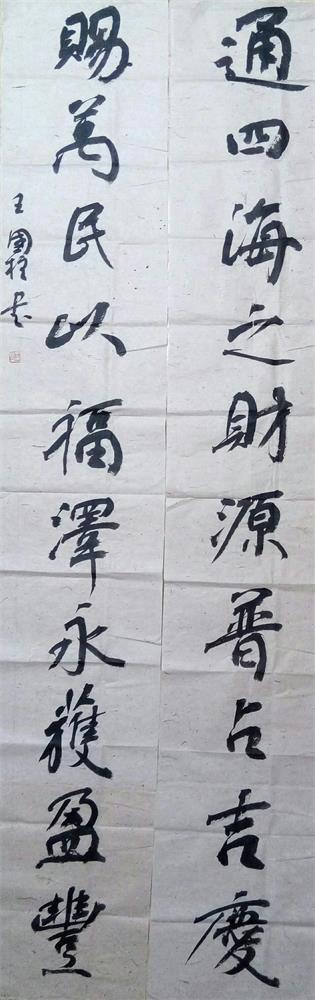 通四海之財源普占吉慶
賜萬民以福澤永獲盈豐
王國程书